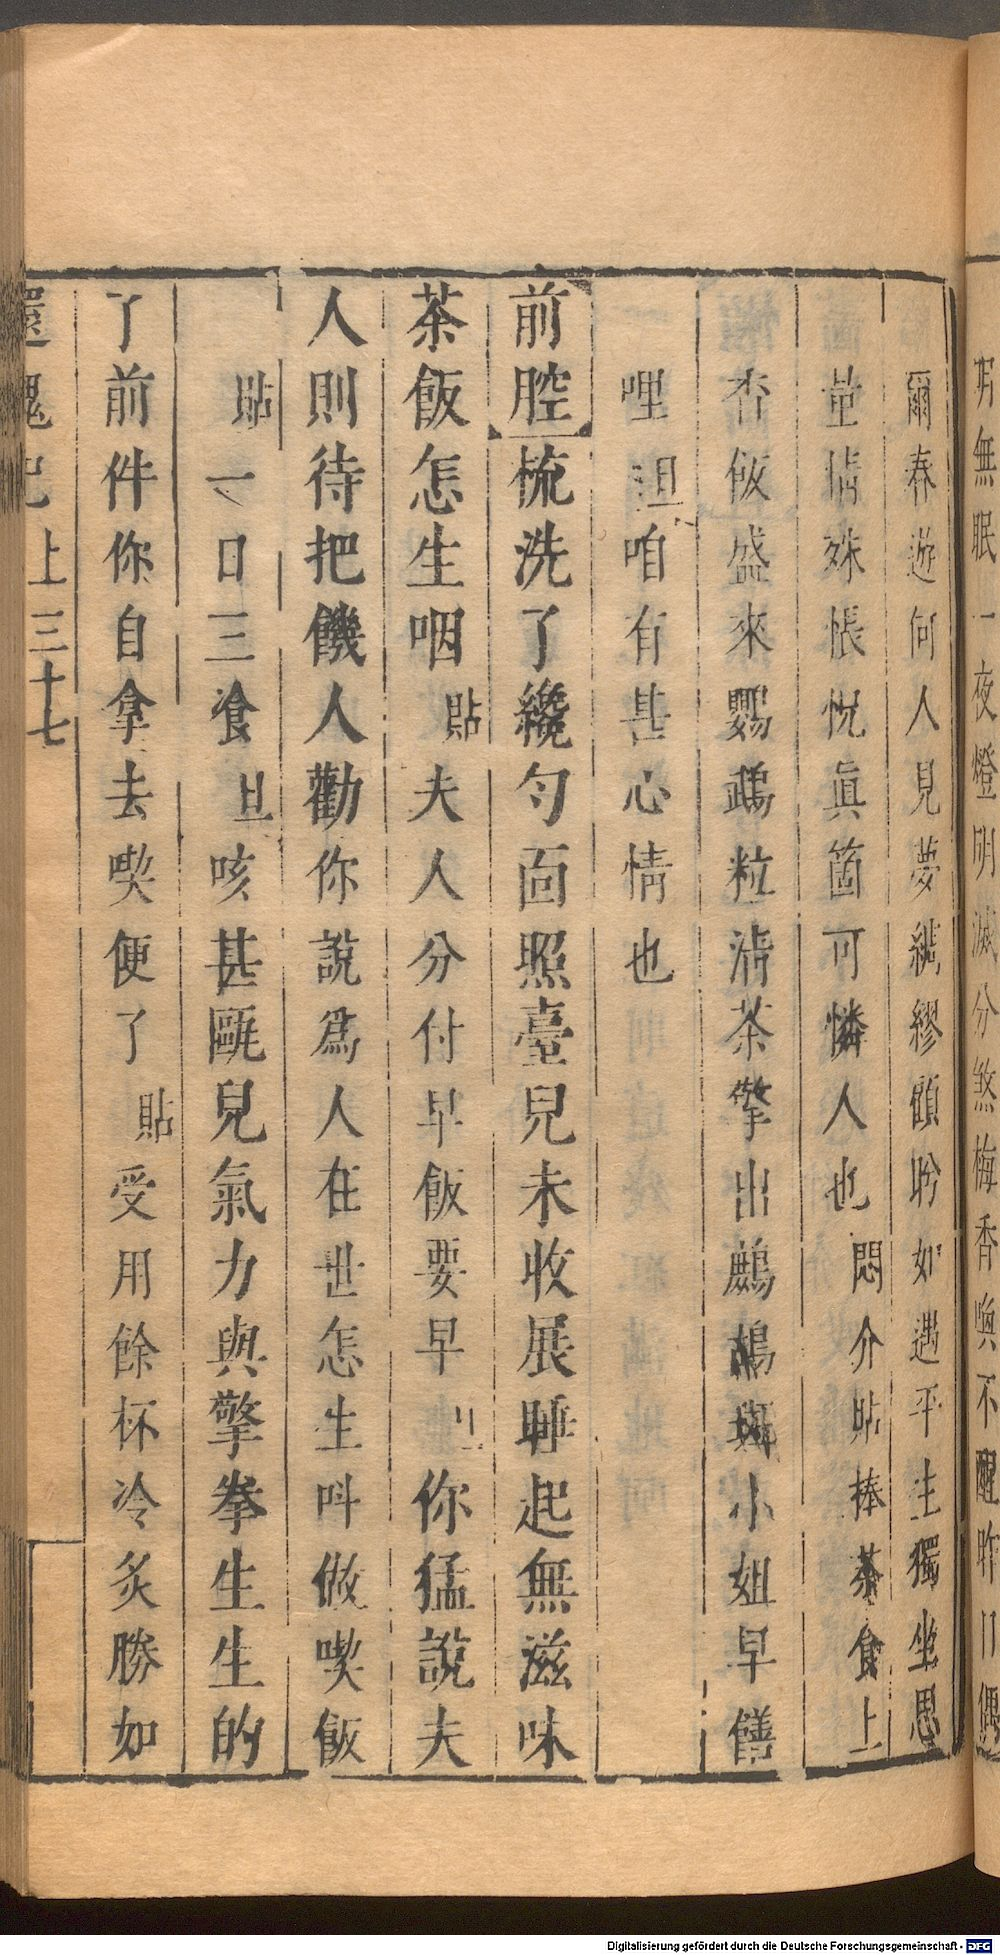 明無眠一夜燈明滅分煞梅香喚不醒昨日偶
爾春遊何人見夢綢繆顧盼如遇平生獨坐思
量情殊悵怳眞箇可憐人也悶介貼捧茶食上
香飯盛來鸚鵡粒清茶擎出鷓鴣斑小姐早饍
哩旦咱有甚心情也
前腔梳洗了纔勻面照臺兒未收展睡起無滋味
茶飯怎生咽貼夫人分付早飯要早旦你猛說夫
人則待把饑人勸你說爲人在世怎生呌做喫飯
貼一日三飡旦咳甚甌兒氣力與擎拳生生的
了前件你自拿去喫便了貼受用餘杯冷炙勝如
還魂記上三十七
Digitalisierung gefördert durch die Deutsche Forschungsgemeinschaft - DFG